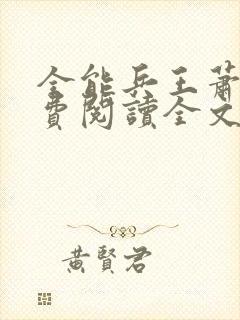 全能兵王蕭
費閱讀全文
黃賢君